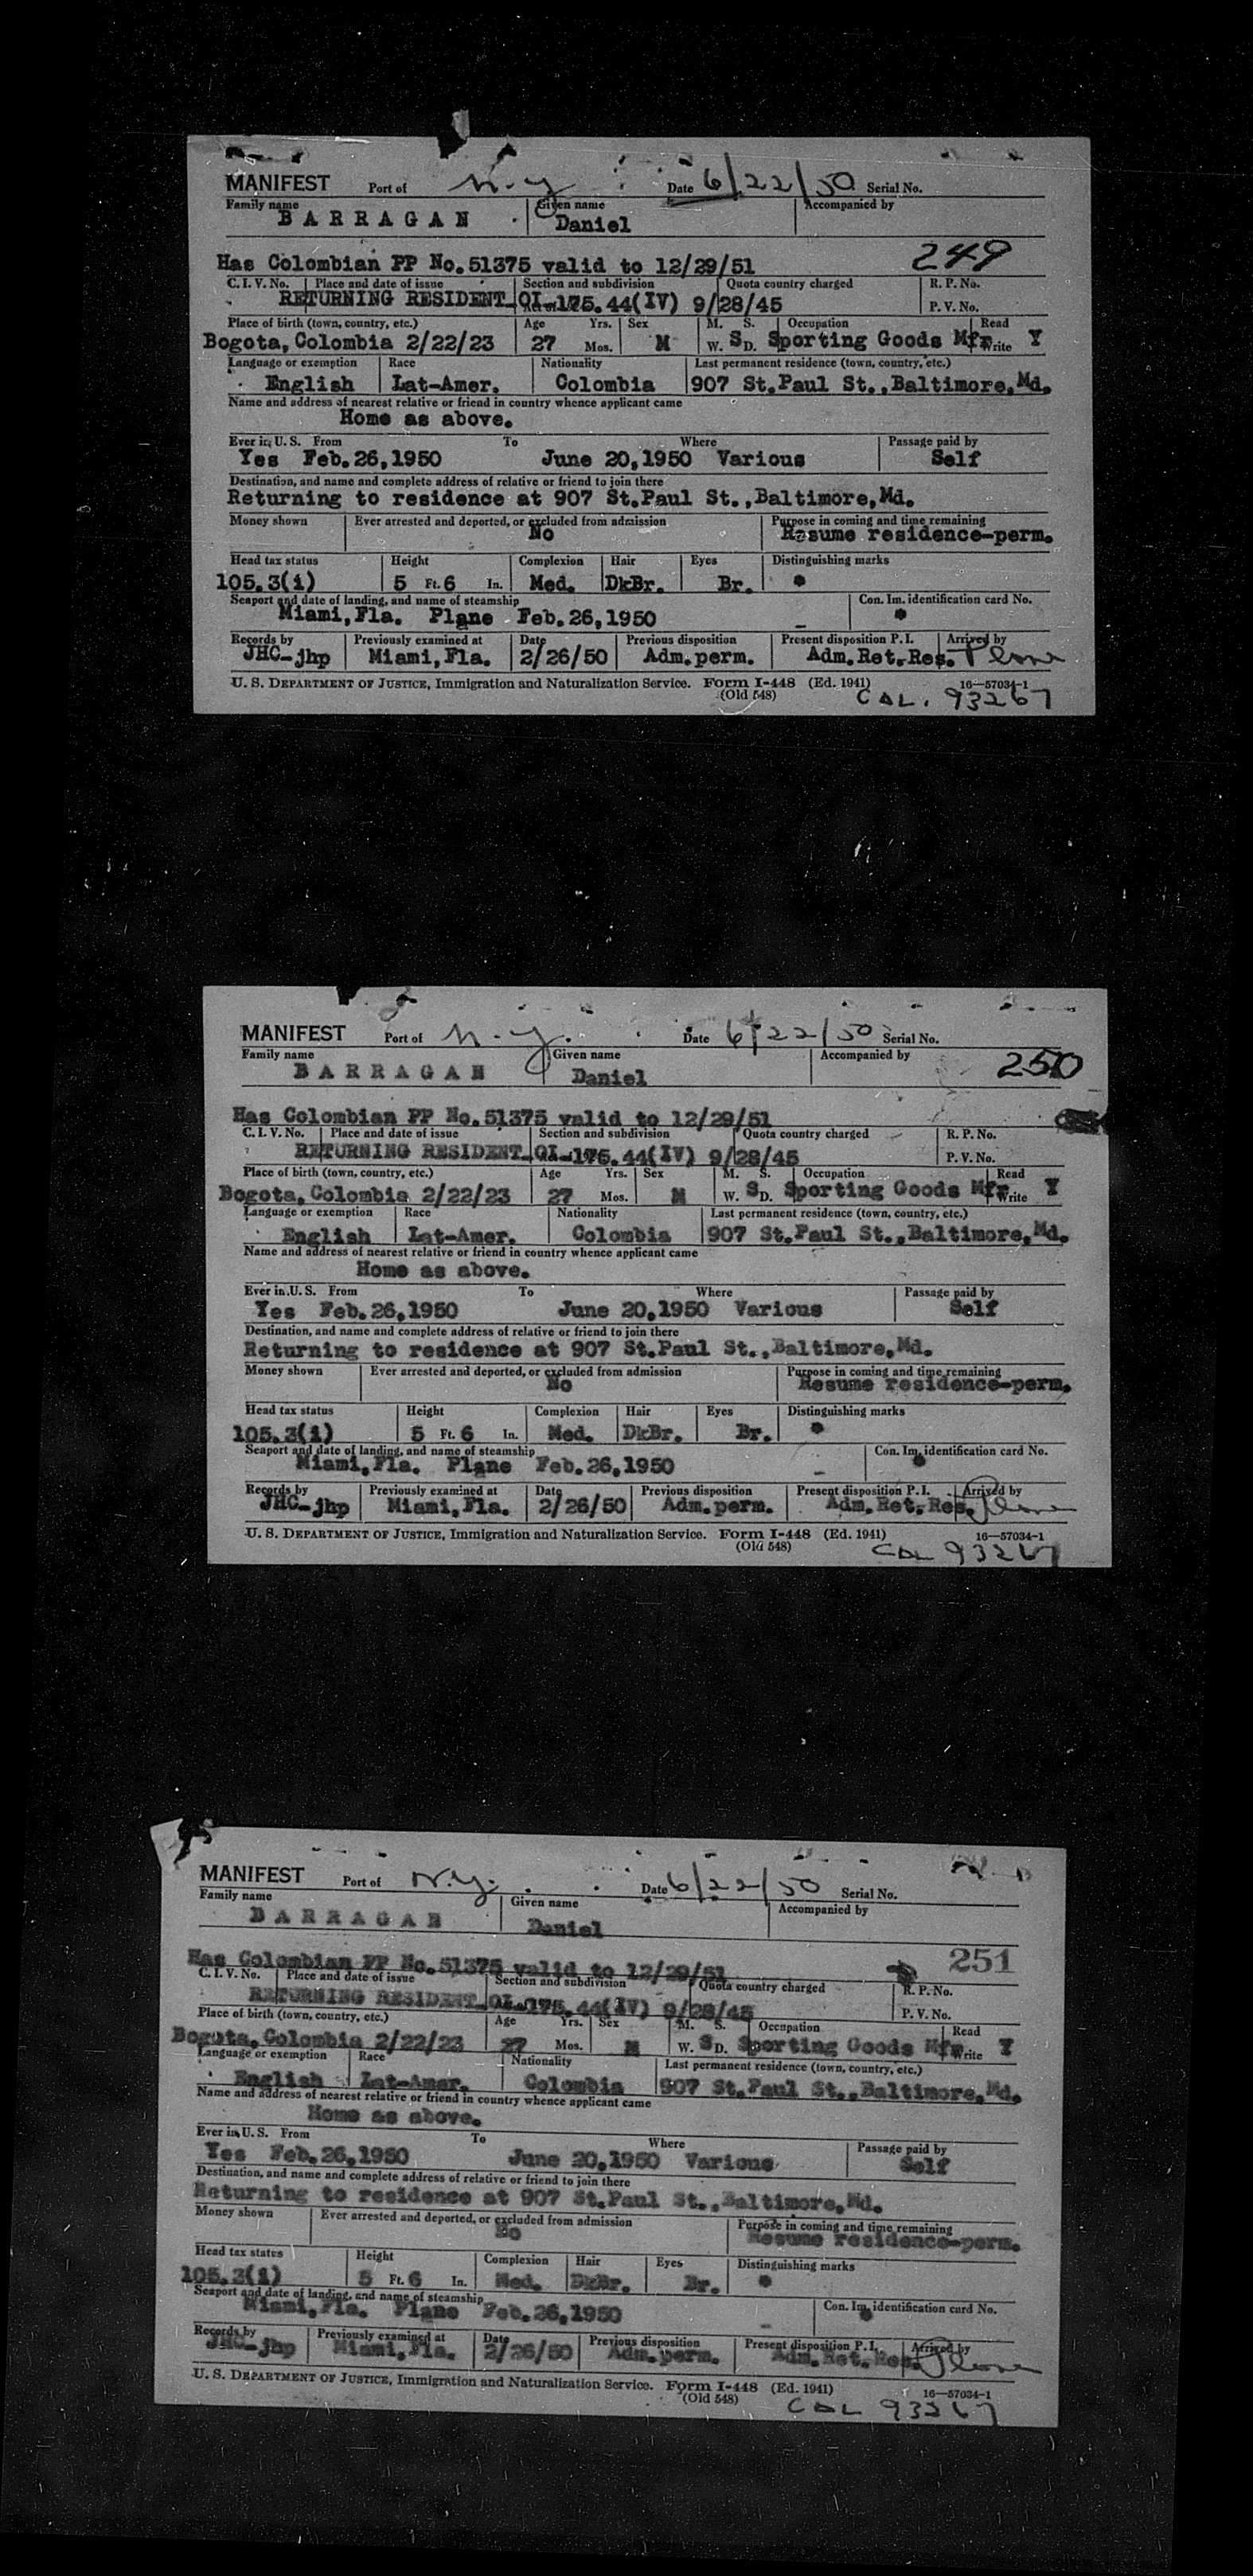 MANIFEST Port of N.Y. Date 6/22/50 Serial No.
Family name Given name Accompanied by
BARRAGAN Daniel
Has Colombian PP No.51375 valid to 12/29/51 249
C. I. V. No. Place and date of issue Section and subdivision Quota country charged R. P. No.
RETURNING RESIDENT QI-175.44(IV) 9/28/45 P. V. No.
Place of birth (town, country, etc.) Age Yrs. Sex M. S. Occupation Read
Bogota, Colombia 2/22/23 27 Mos. M W. S D. Sporting Goods Mfr Write Y
Language or exemption Race Nationality Last permanent residence (town, country, etc.)
English Lat-Amer. Colombia 907 St.Paul St.,Baltimore,Md.
Name and address of nearest relative or friend in country whence applicant came
Home as above.
Ever in U. S. From To Where Passage paid by
Yes Feb.26,1950 June 20,1950 Various Self
Destination, and name and complete address of relative or friend to join there
Returning to residence at 907 St.Paul St.,Baltimore,Md.
Money shown Ever arrested and deported, or excluded from admission Purpose in coming and time remaining
No Resume residence-perm.
Head tax status Height Complexion Hair Eyes Distinguishing marks
105.3(i) 5 Ft. 6 In. Med. DkBr. Br.
Seaport and date of landing, and name of steamship Con. Im. identification card No.
Miami,Fla. Plane Feb.26,1950 -
Records by Previously examined at Date Previous disposition Present disposition P. I. Arrived by
JHC-jhp Miami,Fla. 2/26/50 Adm.perm. Adm.Ret.Res. Plane
U. S. DEPARTMENT OF JUSTICE, Immigration and Naturalization Service. Form I-448 (Ed. 1941) 16—57034-1
(Old 548) CAL. 93267
MANIFEST Port of N.Y. Date 6/22/50 Serial No.
Family name Given name Accompanied by
BARRAGAN Daniel 250
Has Colombian PP No.51375 valid to 12/29/51
C. I. V. No. Place and date of issue Section and subdivision Quota country charged R. P. No.
RETURNING RESIDENT QI-175.44(IV) 9/28/45 P. V. No.
Place of birth (town, country, etc.) Age Yrs. Sex M. S. Occupation Read
Bogota, Colombia 2/22/23 27 Mos. M W. S D. Sporting Goods Mfr Write Y
Language or exemption Race Nationality Last permanent residence (town, country, etc.)
English Lat-Amer. Colombia 907 St.Paul St.,Baltimore,Md.
Name and address of nearest relative or friend in country whence applicant came
Home as above.
Ever in U. S. From To Where Passage paid by
Yes Feb.26,1950 June 20,1950 Various Self
Destination, and name and complete address of relative or friend to join there
Returning to residence at 907 St.Paul St.,Baltimore,Md.
Money shown Ever arrested and deported, or excluded from admission Purpose in coming and time remaining
No Resume residence-perm.
Head tax status Height Complexion Hair Eyes Distinguishing marks
105.3(i) 5 Ft. 6 In. Med. DkBr. Br.
Seaport and date of landing, and name of steamship Con. Im. identification card No.
Miami,Fla. Plane Feb.26,1950 -
Records by Previously examined at Date Previous disposition Present disposition P. I. Arrived by
JHC-jhp Miami,Fla. 2/26/50 Adm.perm. Adm.Ret.Res. Plane
U. S. DEPARTMENT OF JUSTICE, Immigration and Naturalization Service. Form I-448 (Ed. 1941) 16—57034-1
(Old 548) CAL 93267
MANIFEST Port of N.Y. Date 6/22/50 Serial No.
Family name Given name Accompanied by
BARRAGAN Daniel
Has Colombian PP No.51375 valid to 12/29/51 251
C. I. V. No. Place and date of issue Section and subdivision Quota country charged R. P. No.
RETURNING RESIDENT QI-175.44(IV) 9/28/45 P. V. No.
Place of birth (town, country, etc.) Age Yrs. Sex M. S. Occupation Read
Bogota, Colombia 2/22/23 27 Mos. M W. S D. Sporting Goods Mfr Write Y
Language or exemption Race Nationality Last permanent residence (town, country, etc.)
English Lat-Amer. Colombia 907 St.Paul St.,Baltimore,Md.
Name and address of nearest relative or friend in country whence applicant came
Home as above.
Ever in U. S. From To Where Passage paid by
Yes Feb.26,1950 June 20,1950 Various Self
Destination, and name and complete address of relative or friend to join there
Returning to residence at 907 St.Paul St.,Baltimore,Md.
Money shown Ever arrested and deported, or excluded from admission Purpose in coming and time remaining
No Resume residence-perm.
Head tax states Height Complexion Hair Eyes Distinguishing marks
105.3(i) 5 Ft. 6 In. Med. DkBr. Br.
Seaport and date of landing, and name of steamship Con. Im. identification card No.
Miami,Fla. Plane Feb.26,1950 -
Records by Previously examined at Date Previous disposition Present disposition P. I. Arrived by
JHC-jhp Miami,Fla. 2/26/50 Adm.perm. Adm.Ret.Res. Plane
U. S. DEPARTMENT OF JUSTICE, Immigration and Naturalization Service. Form I-448 (Ed. 1941) 16—57034-1
(Old 548) CAL 93267